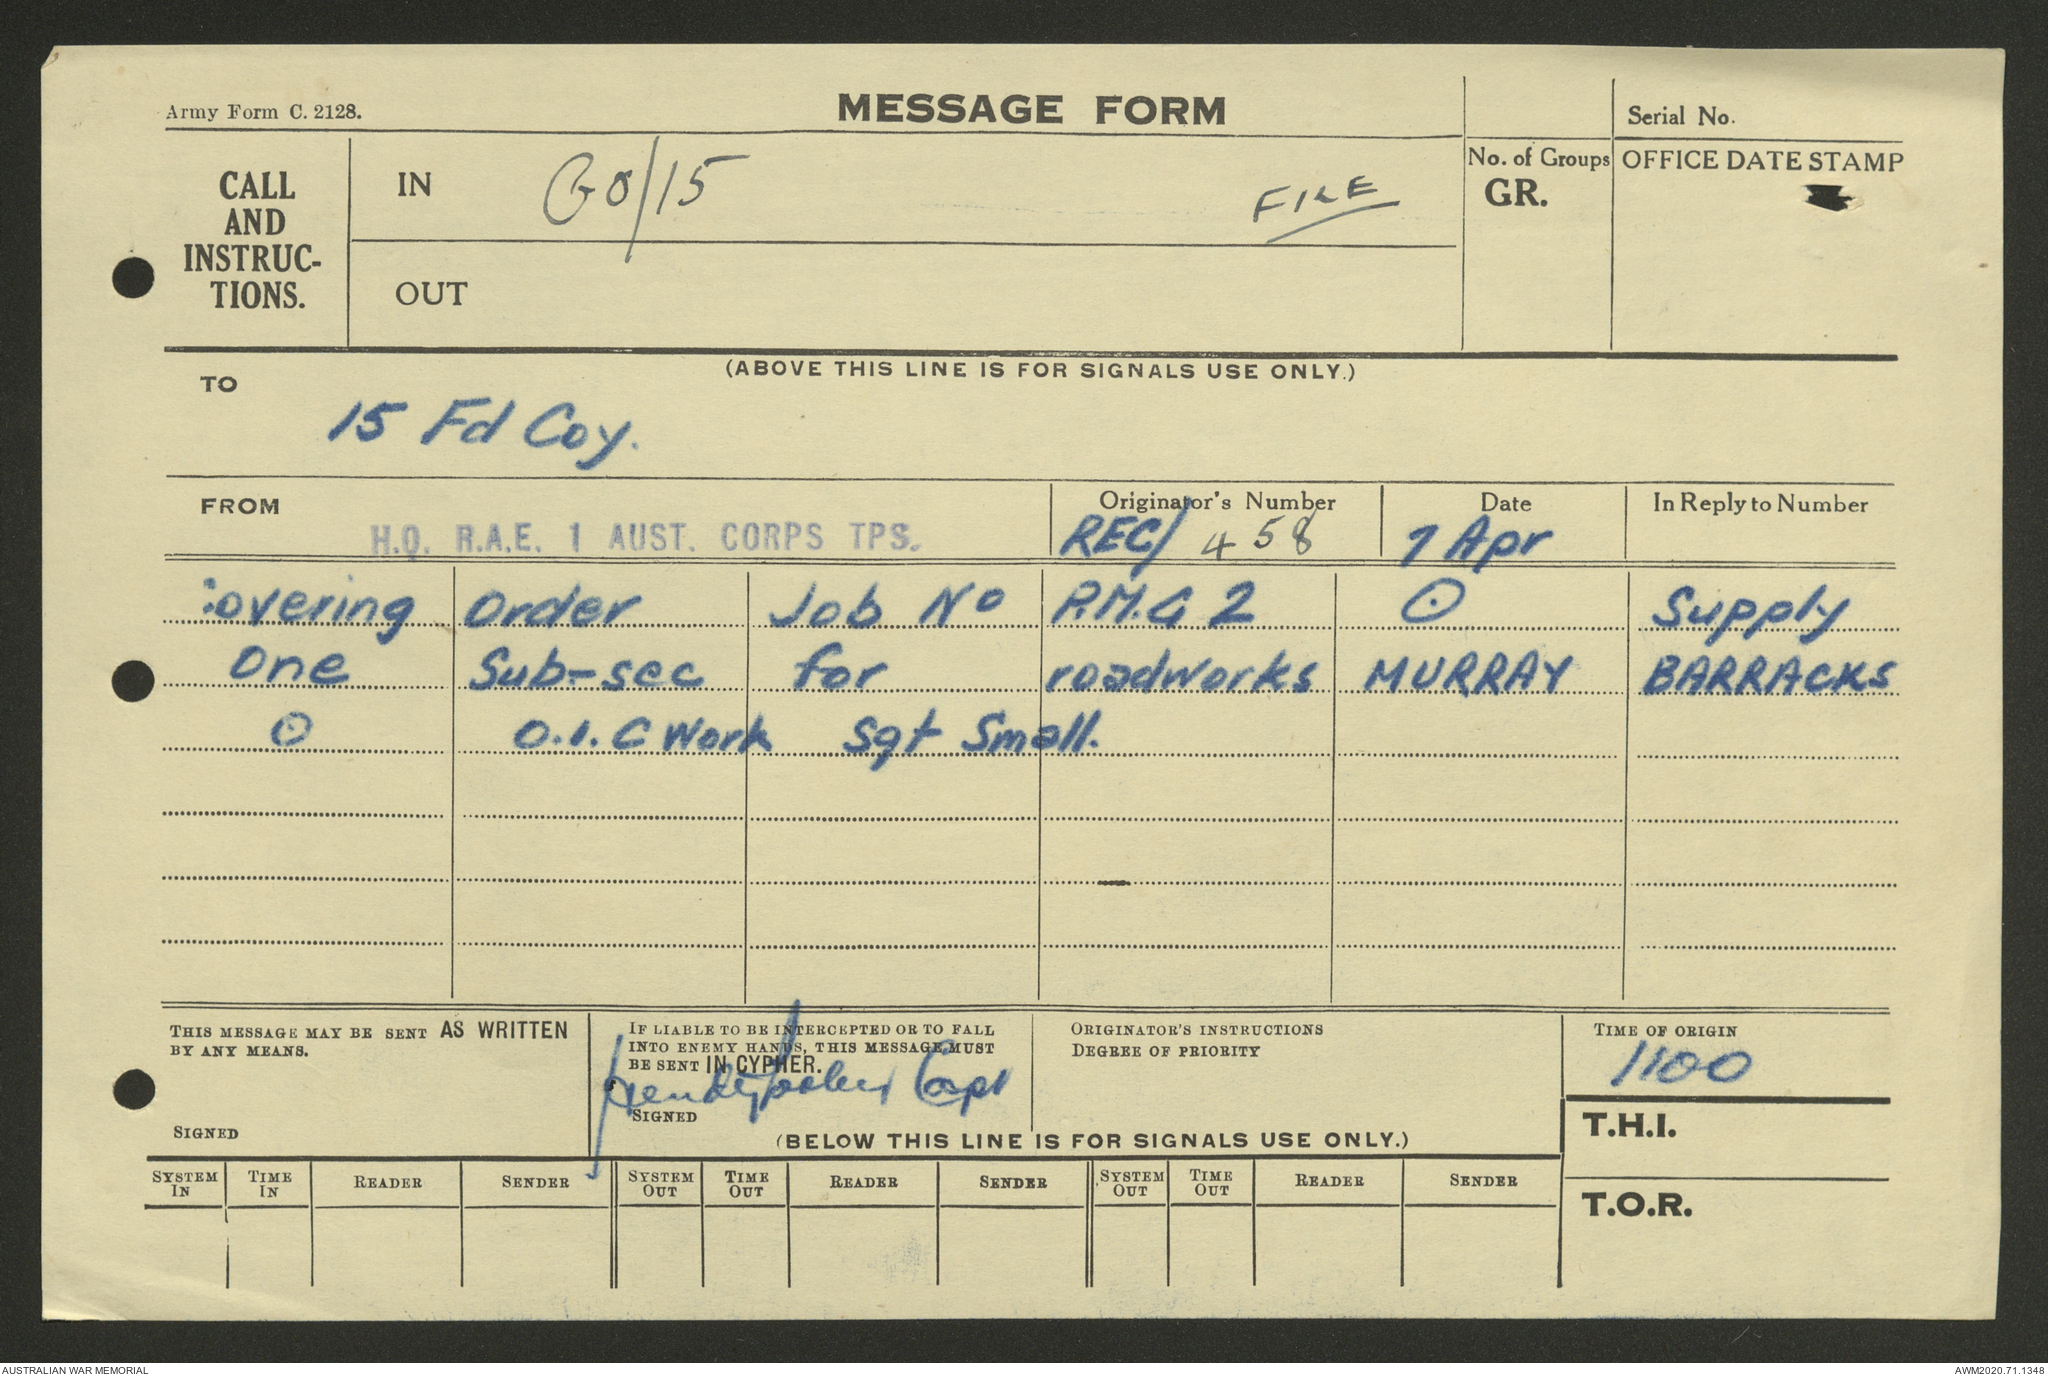 Army Form C. 2128.
MESSAGE FORM
Serial No.
CALL
AND
INSTRUC-
TIONS.
IN
GO/15
FILE
No. of Groups
GR.
OFFICE DATE STAMP
OUT
(ABOVE THIS LINE IS FOR SIGNALS USE ONLY.)
TO
15 Fd Coy.
FROM
H.Q. R.A.E. 1 AUST. CORPS TPS.
Originator's Number
REC/ 458
Date
7 Apr
In Reply to Number
Covering Order Job No P.M.G 2 ⊙ Supply
One Sub-sec for roadworks MURRAY BARRACKS
⊙ O.I.C Work Sgt Small.
THIS MESSAGE MAY BE SENT AS WRITTEN
BY ANY MEANS.
SIGNED
IF LIABLE TO BE INTERCEPTED OR TO FALL
INTO ENEMY HANDS, THIS MESSAGE MUST
BE SENT IN CYPHER.
Capt
SIGNED
ORIGINATOR'S INSTRUCTIONS
DEGREE OF PRIORITY
TIME OF ORIGIN
1100
T.H.I.
T.O.R.
(BELOW THIS LINE IS FOR SIGNALS USE ONLY.)
SYSTEM IN TIME IN READER SENDER SYSTEM OUT TIME OUT READER SENDER SYSTEM OUT TIME OUT READER SENDER
AUSTRALIAN WAR MEMORIAL
AWM2020.71.1348